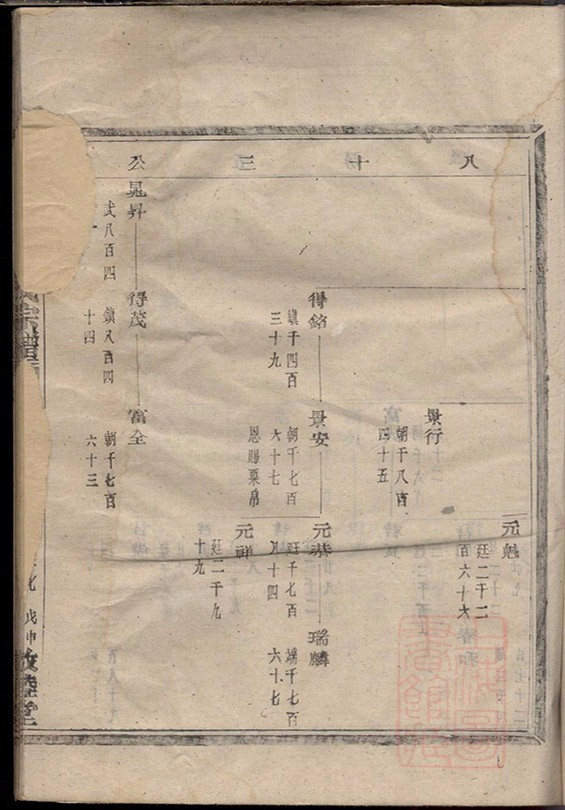 八十三公
元魁
廷二千二
百六十六
景行
朝千八百
四十五
得銘
鎮千四百
三十九
景安
朝千七百
六十七
恩賜粟帛
元恭
廷千七百
八十四
瑞麟
端千七百
六十七
元祥
廷二千九
十九
晁昇
武八百四
得茂
鎮八百四
十四
富全
朝千七百
六十三
宗譜
戊申
敦睦堂